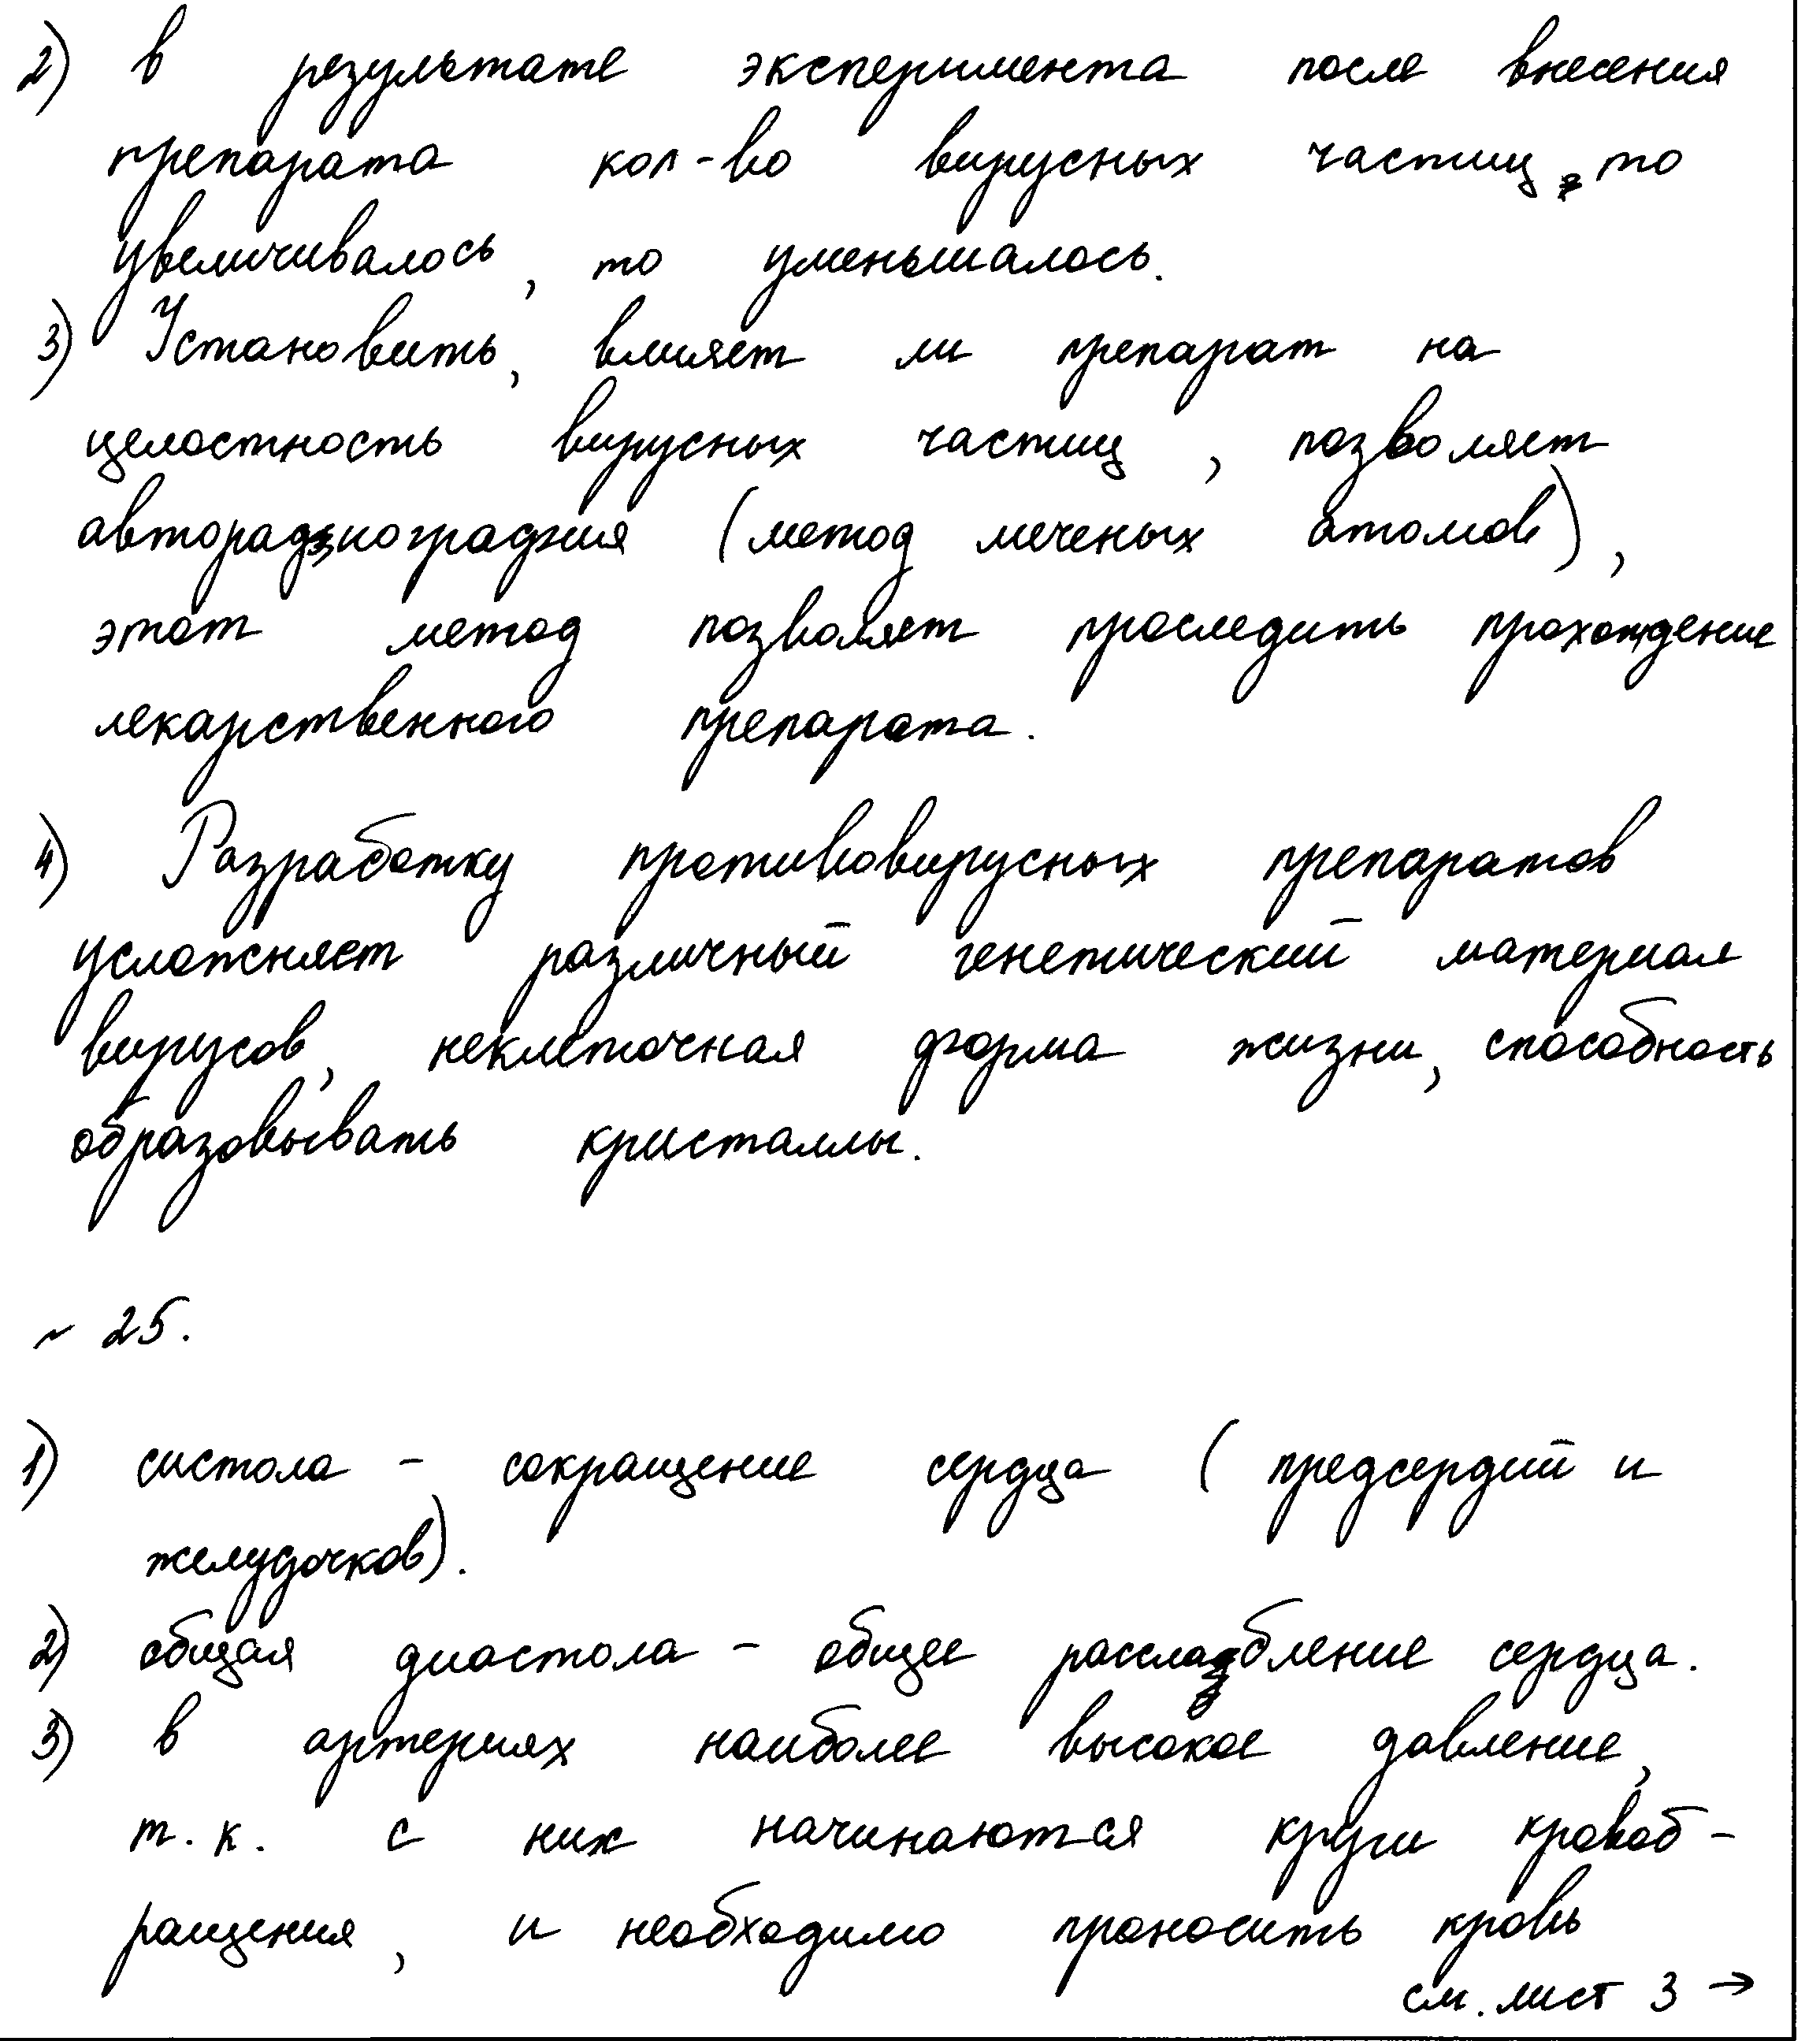 2) в результате эксперимента после внесения
препарата кол-во вирусных частиц то
увеличивалось, то уменьшалось.
3) Установить, влияет ли препарат на
целостность вирусных частиц, позволяет
авторадиография (метод меченых атомов),
этот метод позволяет проследить прохождение
лекарственного препарата.
4) Разработку противовирусных препаратов
усложняет различный генетический материал
вирусов, неклеточная форма жизни, способность
образовывать кристаллы.
~ 25.
1) систола - сокращение сердца (предсердий и
желудочков).
2) общая диастола - общее расслабление сердца.
3) в артериях наиболее высокое давление,
т.к. с них начинаются круги кровоб-
ращения, и необходимо проносить кровь
см. лист 3 →